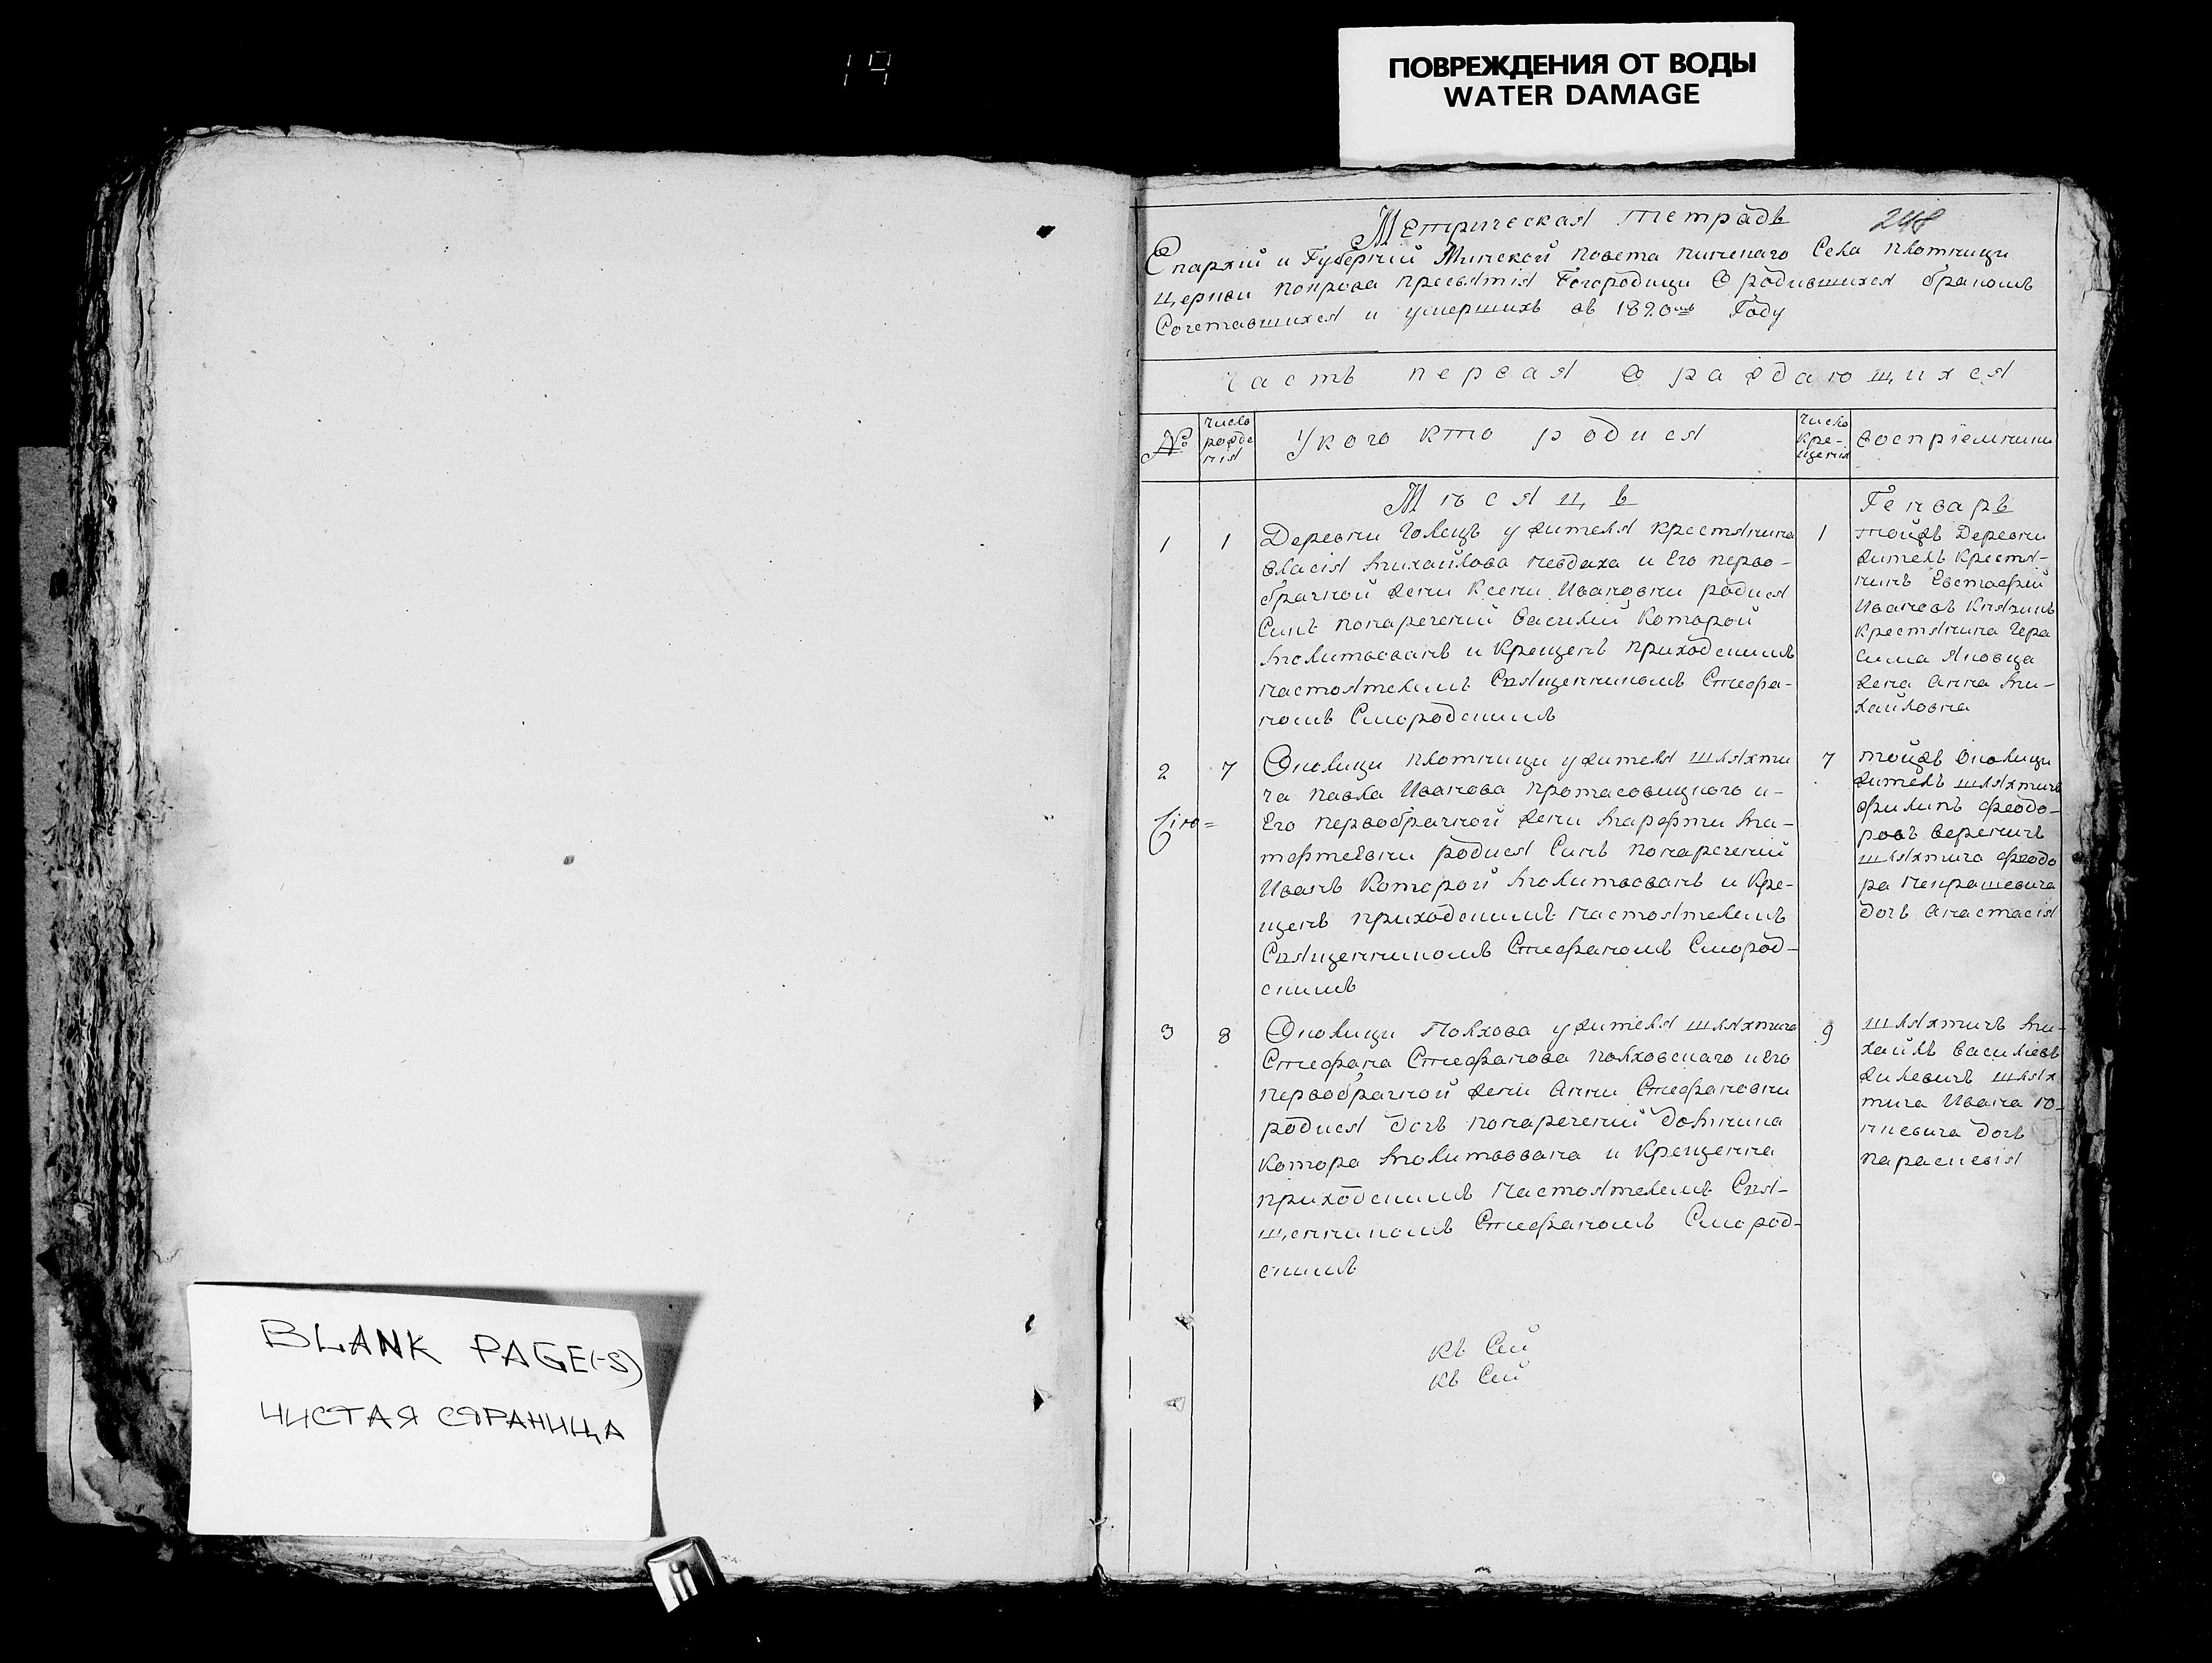 19
ПОВРЕЖДЕНИЯ ОТ ВОДЫ
WATER DAMAGE
Метрическая тетрадь
248
Епархіи и Губерніи Минской повета пинскаго Села плотници
Церкви покрова пресвятія Богородици О родившихся бракомъ
Сочетавшихся и умершихъ въ 1820мъ Году
Часть первая О раждающихся
№
Число рожденія
У кого кто родися
Число крещенія
воспріемники
Мѣсяцъ
Генварь
1
1
Деревни Голецъ у жителя крестянина
власія михайлова невдаха и Его перво-
брачной жени Ксени Ивановни родися
Синъ нонаречений василий Которой
молитвованъ и крещенъ приходскимъ
настоятелимъ Священникомъ Стефа-
номъ Смородскимъ
1
тойжъ Деревни
житель крестя-
нинъ Евстафий
Ивановъ Княжикъ
крестянина Гера
сима Яковца
жена Анна ми-
хайловна
2
7
Околици плотници у жителя шляхти
ча павла Иванова протасовицкого и-
Его первообрачной жени марфти ма-
тфтеевни родися Синъ нонаречений
Иванъ Которой молитвованъ и кре-
щенъ приходскимъ настоятелемъ
Священникомъ Стефаномъ Смород-
скимъ
7
тойжъ Околици
житель шляхтичъ
филипъ феодо-
ровъ вереничъ
шляхтича феодо
ра пекрашевича
дочь Анастасія
3
8
Околици Полхова у жителя шляхтича
Стефана Стефанова полховскаго и Его
первобрачной жени Анни Стефановни
родися дочь нонаречений домникa
котора молитвована и крещенна
приходскимъ настоятелемъ Свя-
щенникомъ Стефаномъ Смород-
скимъ
9
шляхтичъ ми-
хайлъ василіевъ
жилевичъ шлях
тича Ивана ю-
хневича дочь
параскевія
къ Сей
къ Сей
BLANK PAGE(-S)
ЧИСТАЯ СТРАНИЦА